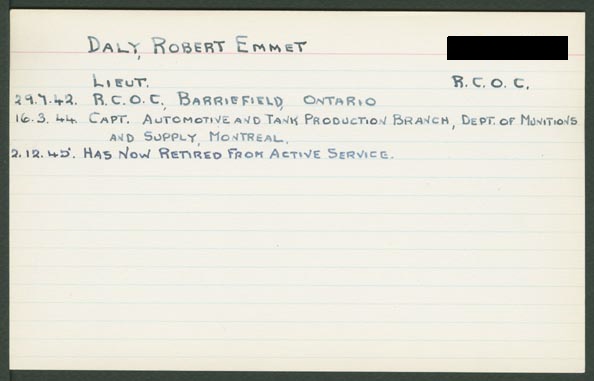 DALY, ROBERT EMMET
LIEUT. R.C.O.C.
29.7.42. R.C.O.C., BARRIEFIELD, ONTARIO
16.3.44. CAPT. AUTOMOTIVE AND TANK PRODUCTION BRANCH, DEPT. OF MUNITIONS
AND SUPPLY, MONTREAL.
2.12.45. HAS NOW RETIRED FROM ACTIVE SERVICE.